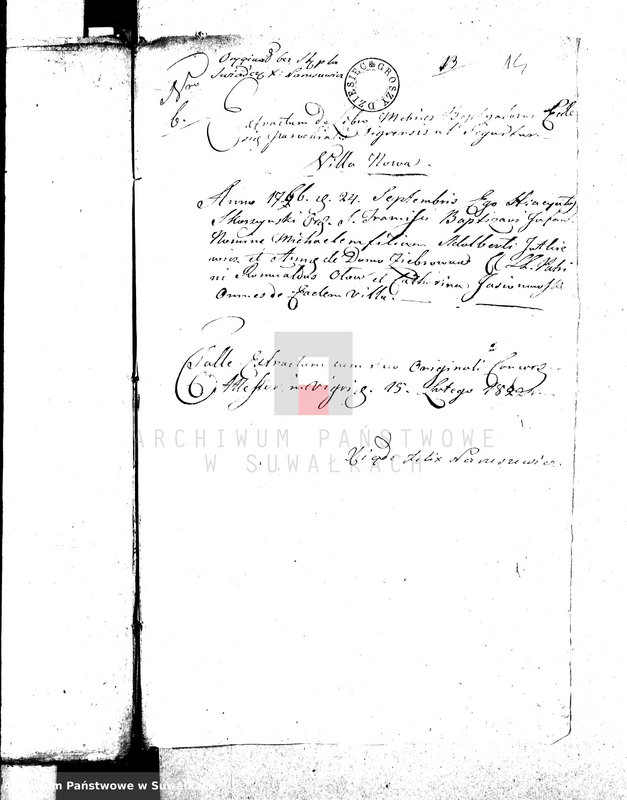 Oryginał bez Stępla
Świadczę X: Naruszewicz
13 14
DZIESIĘĆ GROSZY
Nro
6.
Extractum de libro Metrices Baptisatorum Eccle
siæ Parochialis Vigrensis ut Sequitur
Villa Nowa.
Anno 1766. d. 24. Septembris Ego Hiacynthus
Skorzynski Ord. S. Francisci Baptizavi Infan.
Nomine Michaelem filium Adalberti
et Annæ de Domo LL. Patri
ni Romualdus et Catharina
omnes de Eadem Villa.
Talle Extractum cum suo Originali
Attestor in Vigri d. 15. Lutego
Xiądz Felix Naruszewicz
ARCHIWUM PAŃSTWOWE
W SUWAŁKACH
m Państwowe w Suwał